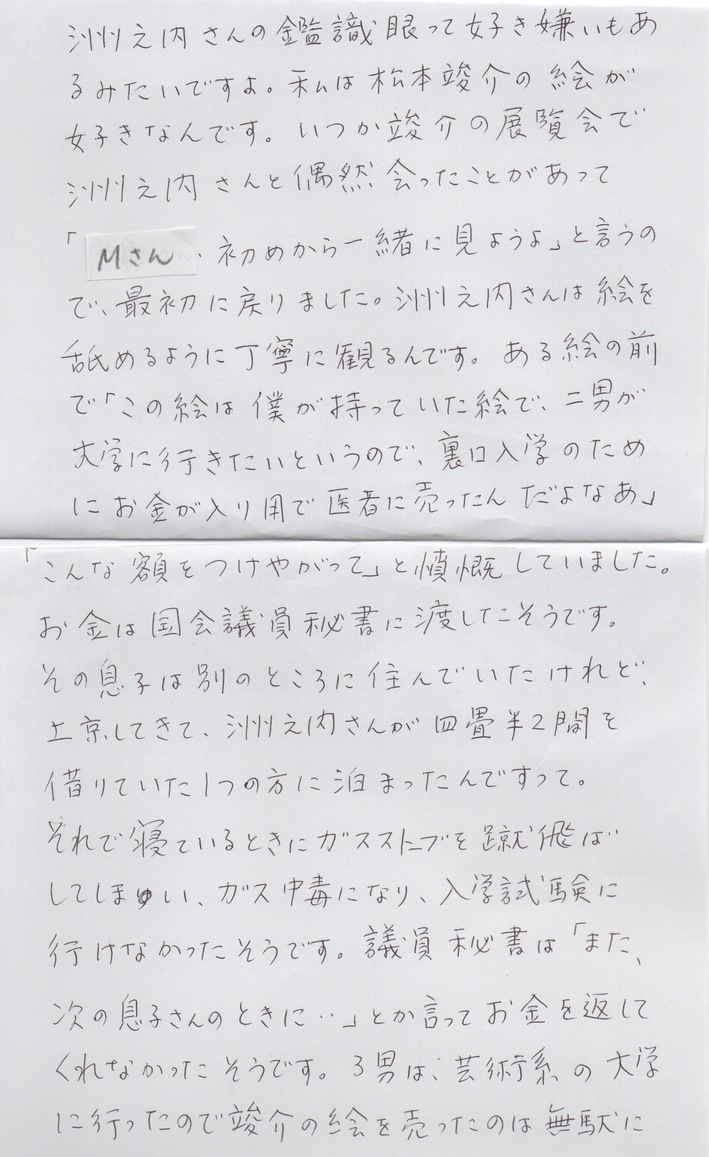 洲之内さんの鑑識眼って好き嫌いもあ
るみたいですよ。私は松本竣介の絵が
好きなんです。いつか竣介の展覧会で
洲之内さんと偶然会ったことがあって
「Mさん、初めから一緒に見ようよ」と言うの
で、最初に戻りました。洲之内さんは絵を
舐めるように丁寧に観るんです。ある絵の前
で「この絵は僕が持っていた絵で、二男が
大学に行きたいというので、裏口入学のため
にお金が入り用で医者に売ったんだよなあ」
「こんな額をつけやがって」と憤慨していました。
お金は国会議員秘書に渡したそうです。
その息子は別のところに住んでいたけれど、
上京してきて、洲之内さんが四畳半2間を
借りていた1つの方に泊まったんですって。
それで寝ているときにガスストーブを蹴飛ば
してしまい、ガス中毒になり、入学試験に
行けなかったそうです。議員秘書は「また、
次の息子さんのときに‥」とか言ってお金を返して
くれなかったそうです。3男は、芸術系の大学
に行ったので竣介の絵を売ったのは無駄に